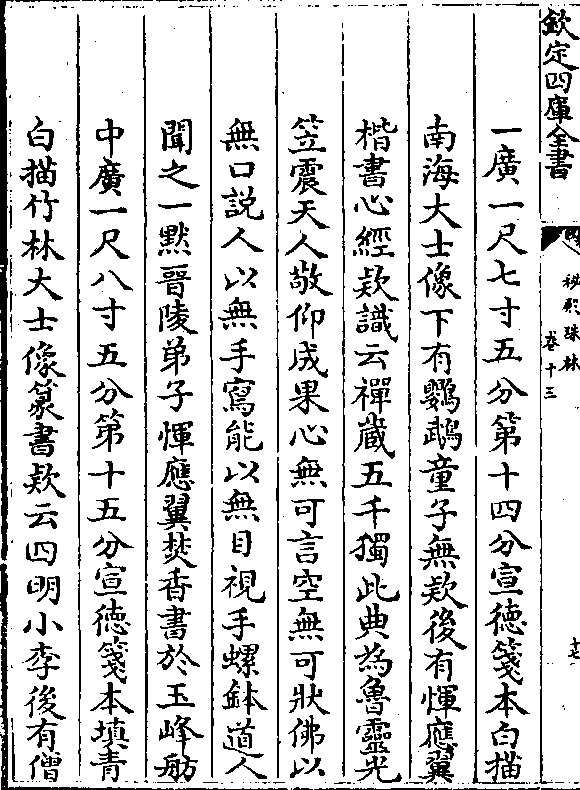 欽定四庫全書
秘殿珠林
卷十三
一廣一尺七寸五分第十四分宣德箋本白描
南海大士像下有鸚鵡童子無欵後有惲應翼
楷書心經欵識云禪藏五千獨此典為魯靈光
笠震天人敬仰成果心無可言空無可狀佛以
無口説人以無手寫能以無目視手螺鉢道人
聞之一默晉陵弟子惲應翼焚香書於玉峰舫
中廣一尺八寸五分第十五分宣德箋本填青
白描竹林大士像篆書欵云四明小李後有僧